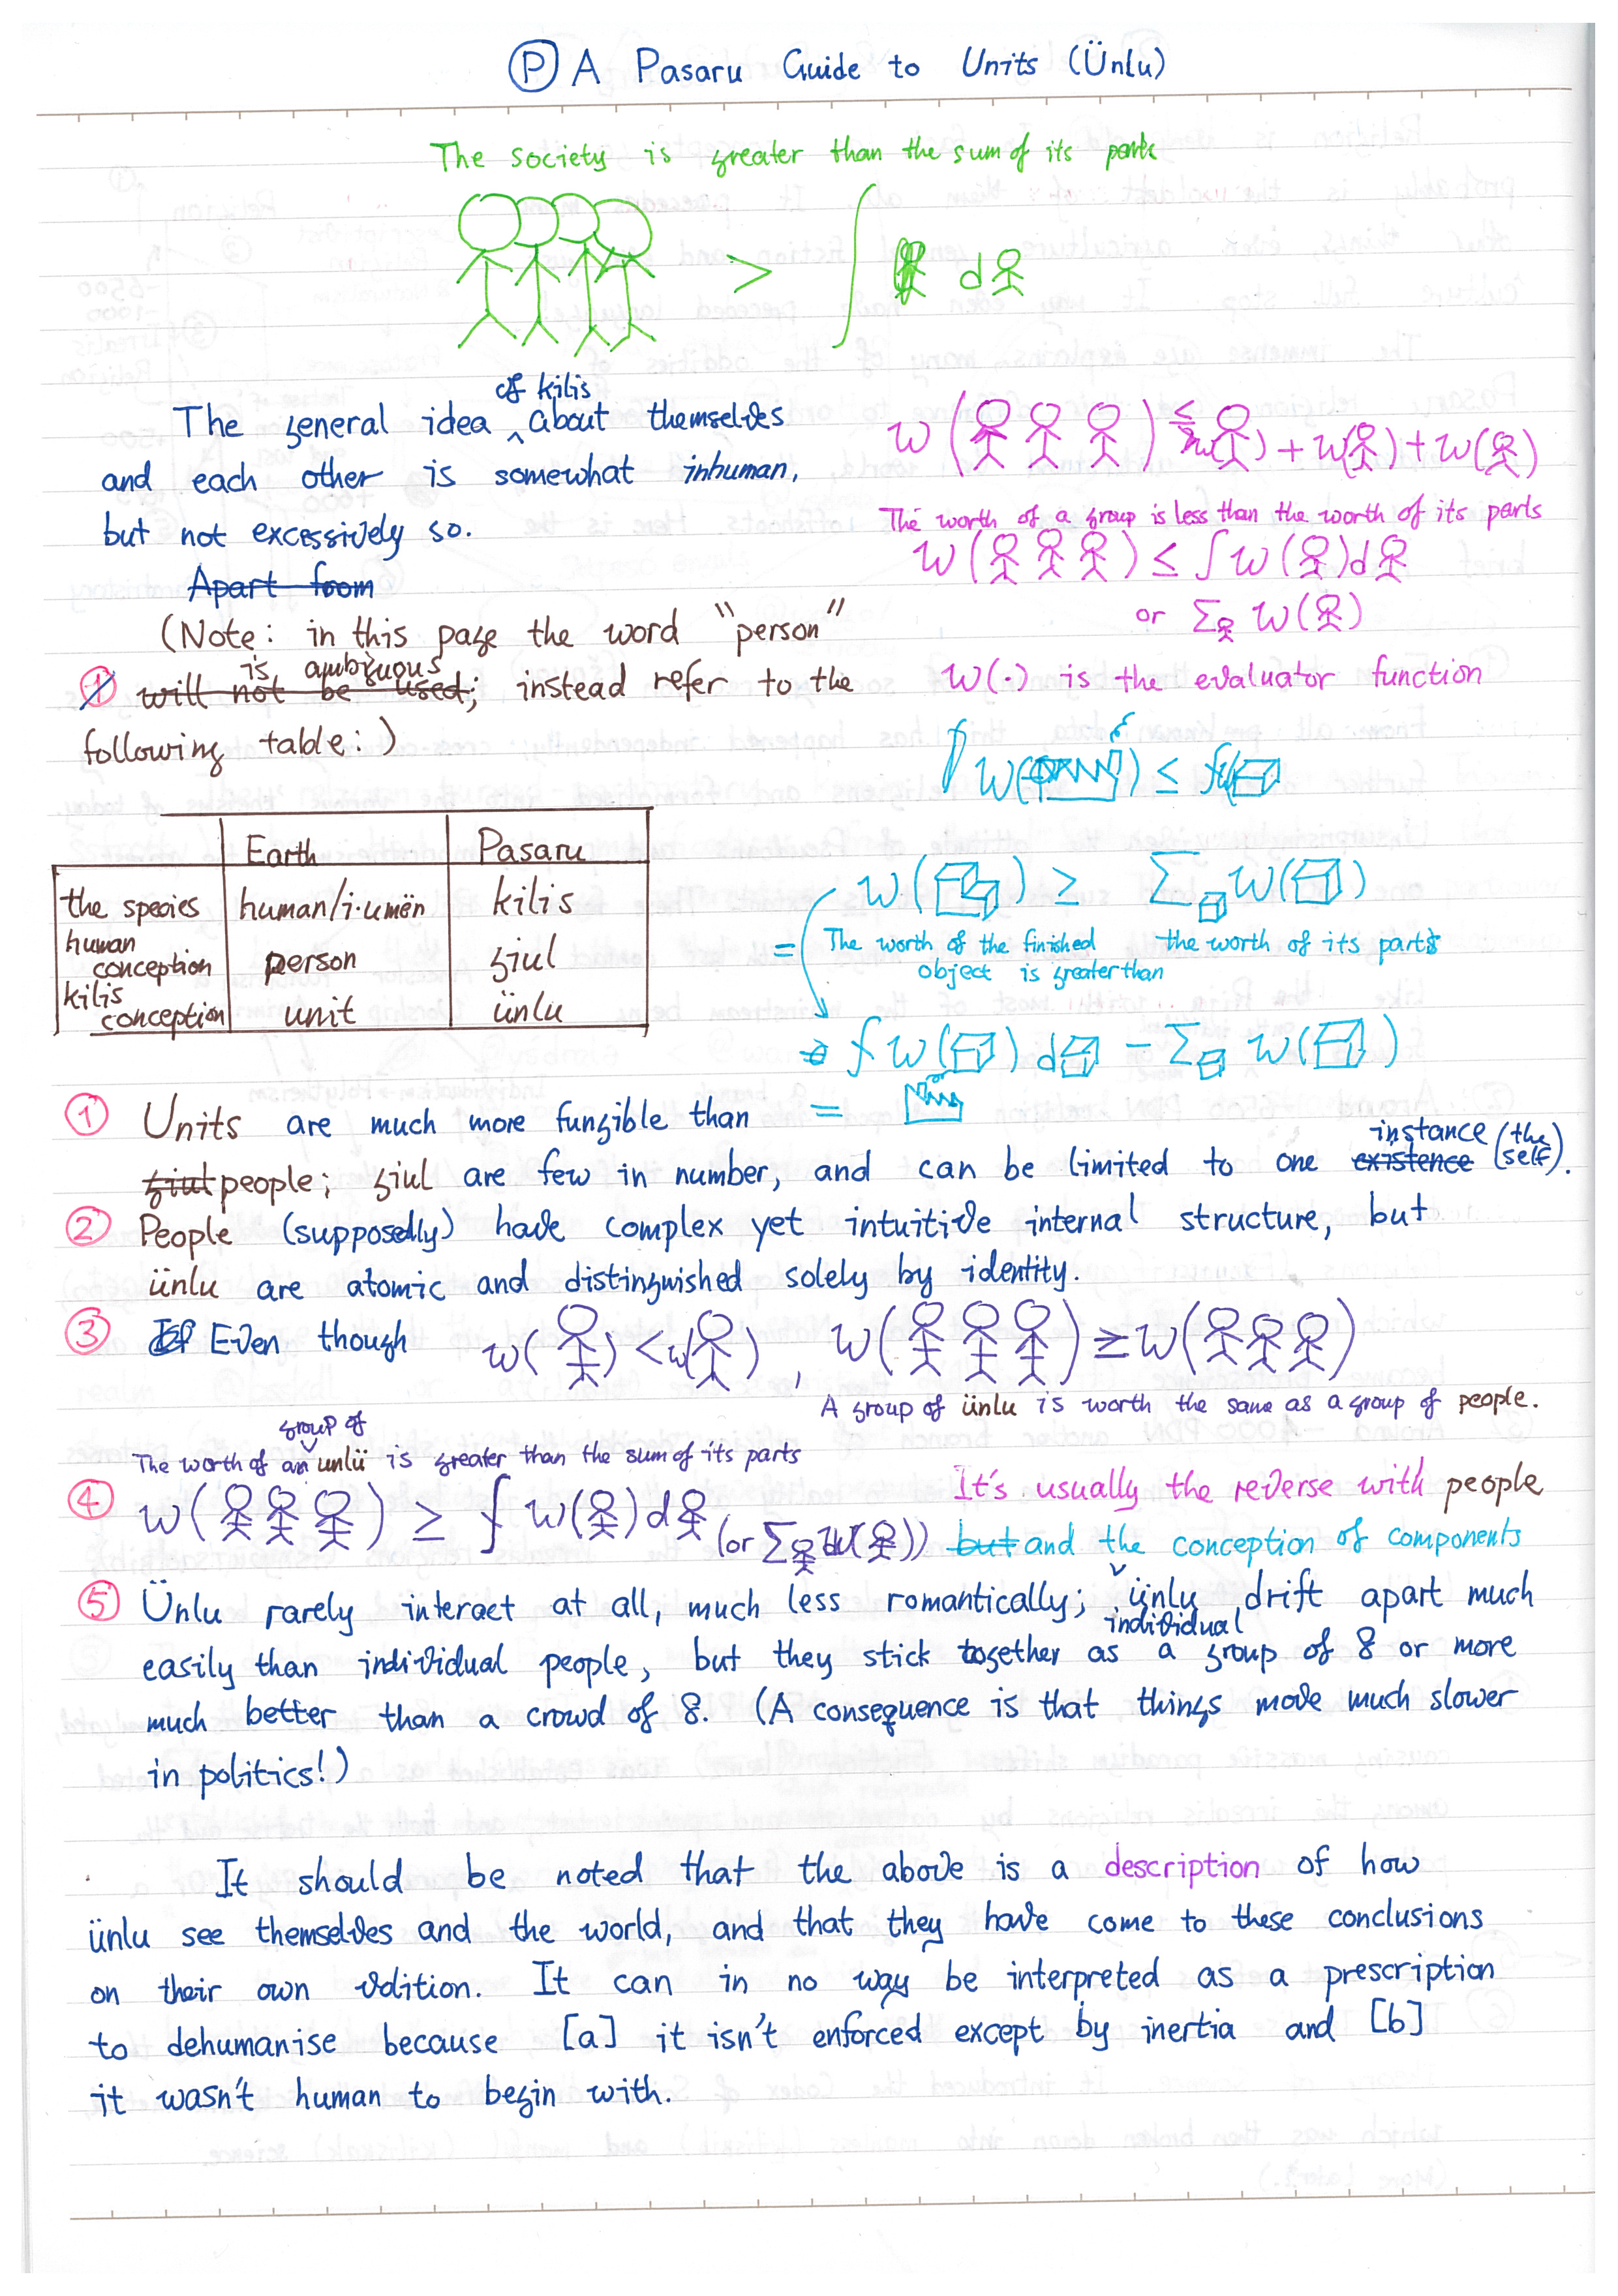 Ⓟ A Pasaru Guide to Units (Ünlu)
The society is greater than the sum of its parts
> ∫ d
of kilis
The general idea ‸ about themselves
and each other is somewhat inhuman,
but not excessively so.
Apart from
(Note: in this page the word "person"
is ambiguous
will not be used; instead refer to the
following table:)
w( ) ≤ w( ) + w( ) + w( )
The worth of a group is less than the worth of its parts
w( ) ≤ ∫ w( ) d
or Σ w( )
w(·) is the evaluator function
w( ) ≤
w( ) ≥ Σ w( )
= The worth of the finished the worth of its parts
object is greater than
∫ w( ) d − Σ w( )
=
Earth Pasaru
the species human/i·umën kilis
human
conception person giul
kilis
conception unit ünlu
① Units are much more fungible than
instance (the
giul people; giul are few in number, and can be limited to one existence (self).
② People (supposedly) have complex yet intuitive internal structure, but
ünlu are atomic and distinguished solely by identity.
③ Even though w( ) < w( ), w( ) ≥ w( )
A group of ünlu is worth the same as a group of people.
group of
The worth of an unlü is greater than the sum of its parts
④ w( ) ≥ ∫ w( ) d (or Σ w( )) It's usually the reverse with people
but and the conception of components
⑤ Ünlu rarely interact at all, much less romantically; ünlu drift apart much
individual
easily than individual people, but they stick together as a group of 8 or more
much better than a crowd of 8. (A consequence is that things move much slower
in politics!)
It should be noted that the above is a description of how
ünlu see themselves and the world, and that they have come to these conclusions
on their own volition. It can in no way be interpreted as a prescription
to dehumanise because [a] it isn't enforced except by inertia and [b]
it wasn't human to begin with.